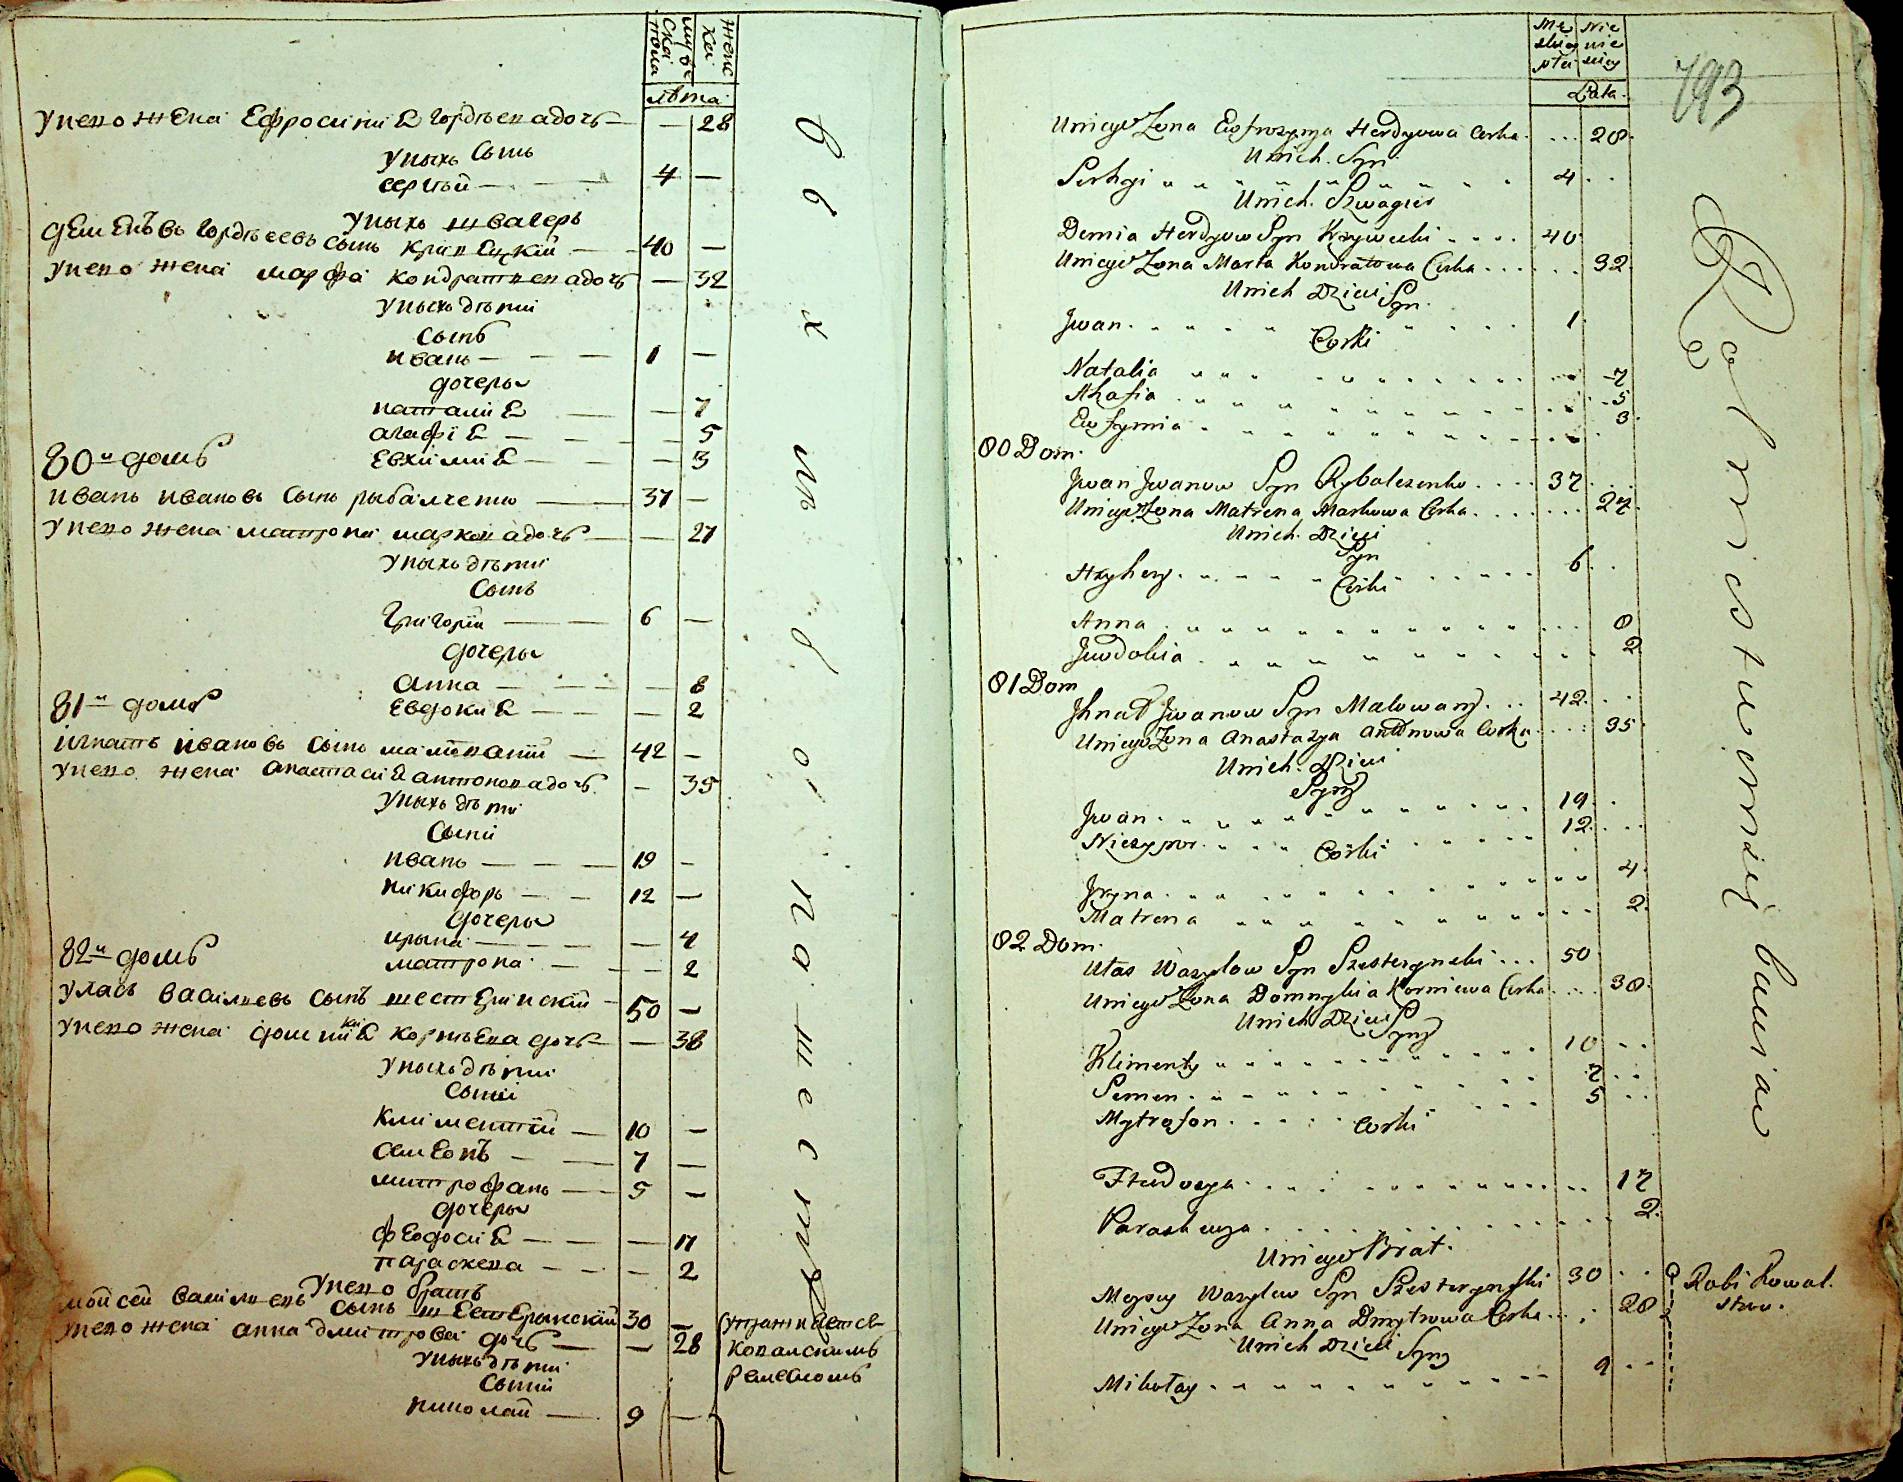 мужеска пола
женска
лѣта
унего жена Ефросинiя гордѣева дочь — — 28
унихъ сынъ
сергѣй — — 4 —
унихъ швагеръ
деменъ гордѣевъ сынъ кривецкiй — 40 —
унего жена марфа кондратова дочь — 32
унихъ дѣти
сынъ
иванъ — — — 1 —
дочеры
наталiя — — 7
агафiя — — — 5
евхимiя — — — 3
80й домъ
иванъ ивановъ сынъ рыбалченко — 37 —
унего жена матрона маркова дочь — — 27
унихъ дѣти
сынъ
григорiй — — 6 —
дочеры
анна — — — 8
евдокия — — — 2
81й домъ
игнатъ ивановъ сынъ малеваный — 42 —
унего жена анастасия антонова дочь — 35
унихъ дѣти
сыни
иванъ — — — 19 —
никифоръ — — 12 —
дочеры
ирына — — — 4
матрона — — — 2
82й домъ
уласъ васильевъ сынъ шестеринскiй — 50 —
унего жена домникiя корнѣева дочь — — 38
унихъ дѣти
сыни
климентiй — 10 —
семенъ — — 7 —
митрофанъ — 5 —
дочеры
феодосия — — — 17
параскева — — — 2
унего братъ
мойсей васильевъ сынъ шестерынскiй 30 —
унего жена анна дмитрова дочь — — 28
унихъ дѣти
сыни
николай — 9 —
упражняется
ковалскимъ
ремесломъ
Męskiey płci
Niewiesciey
Lata
793
Uniego Zona Eufrozyna Herdyowa Corka . ... 28.
Unich. Syn
Serhyi 4 . .
Unich. Szwagier
Demia Herdyow Syn Krywecki . . . . 40
Uniego Zona Marta Kondratowa Corka . . . . . . 32.
Unich Dzieci Syn.
Jwan. 1.
Corki
Natalia 7
Ahafia 5
Eufymia 3.
80 Dom.
Jwan Jwanow Syn Rybalczenko . . . . 37
Uniego Zona Matrena Markowa Corka . . . . . . . 27.
Unich. Dzieci
Syn
Hryhory . 6 . .
Corki
Anna . 8
Jewdokia . 2
81 Dom
Jhnat Jwanow Syn Malowany . . . 42. . .
Uniego Zona Anastazya Antonowa Corka . . . : 35.
Unich. Dzieci
Syny
Jwan . 19. .
Niczypor . 12. . .
Corki
Jryna . 4.
Matrena 2.
82 Dom.
Ułas Wasylow Syn Szesterynski . . . 50
Uniego Zona Domnykia Korniewa Corka . . . . 38.
Unich Dzieci Syny
Klimenty 10 . .
Semen . 7 . .
Mytrofon . 5 . .
Corki
Fteodosya . 17
Paraskewya . 2.
Uniego Brat.
Moysey Wasylow Syn Szesterynski 30 . .
Uniego Zona Anna Dmytrowa Corka . . . 28
Unich Dzieci Syny
Mikołay . 9 . .
Robi Kowal.
stwo.